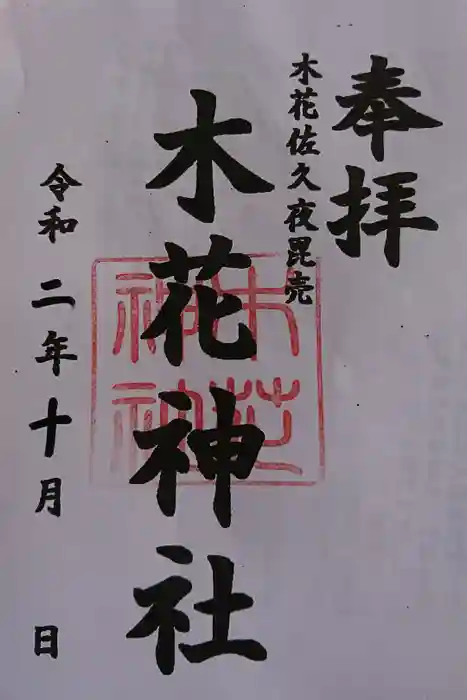 奉拝
木花佐久夜毘売
木花神社
木花神社
令和二年十月　日